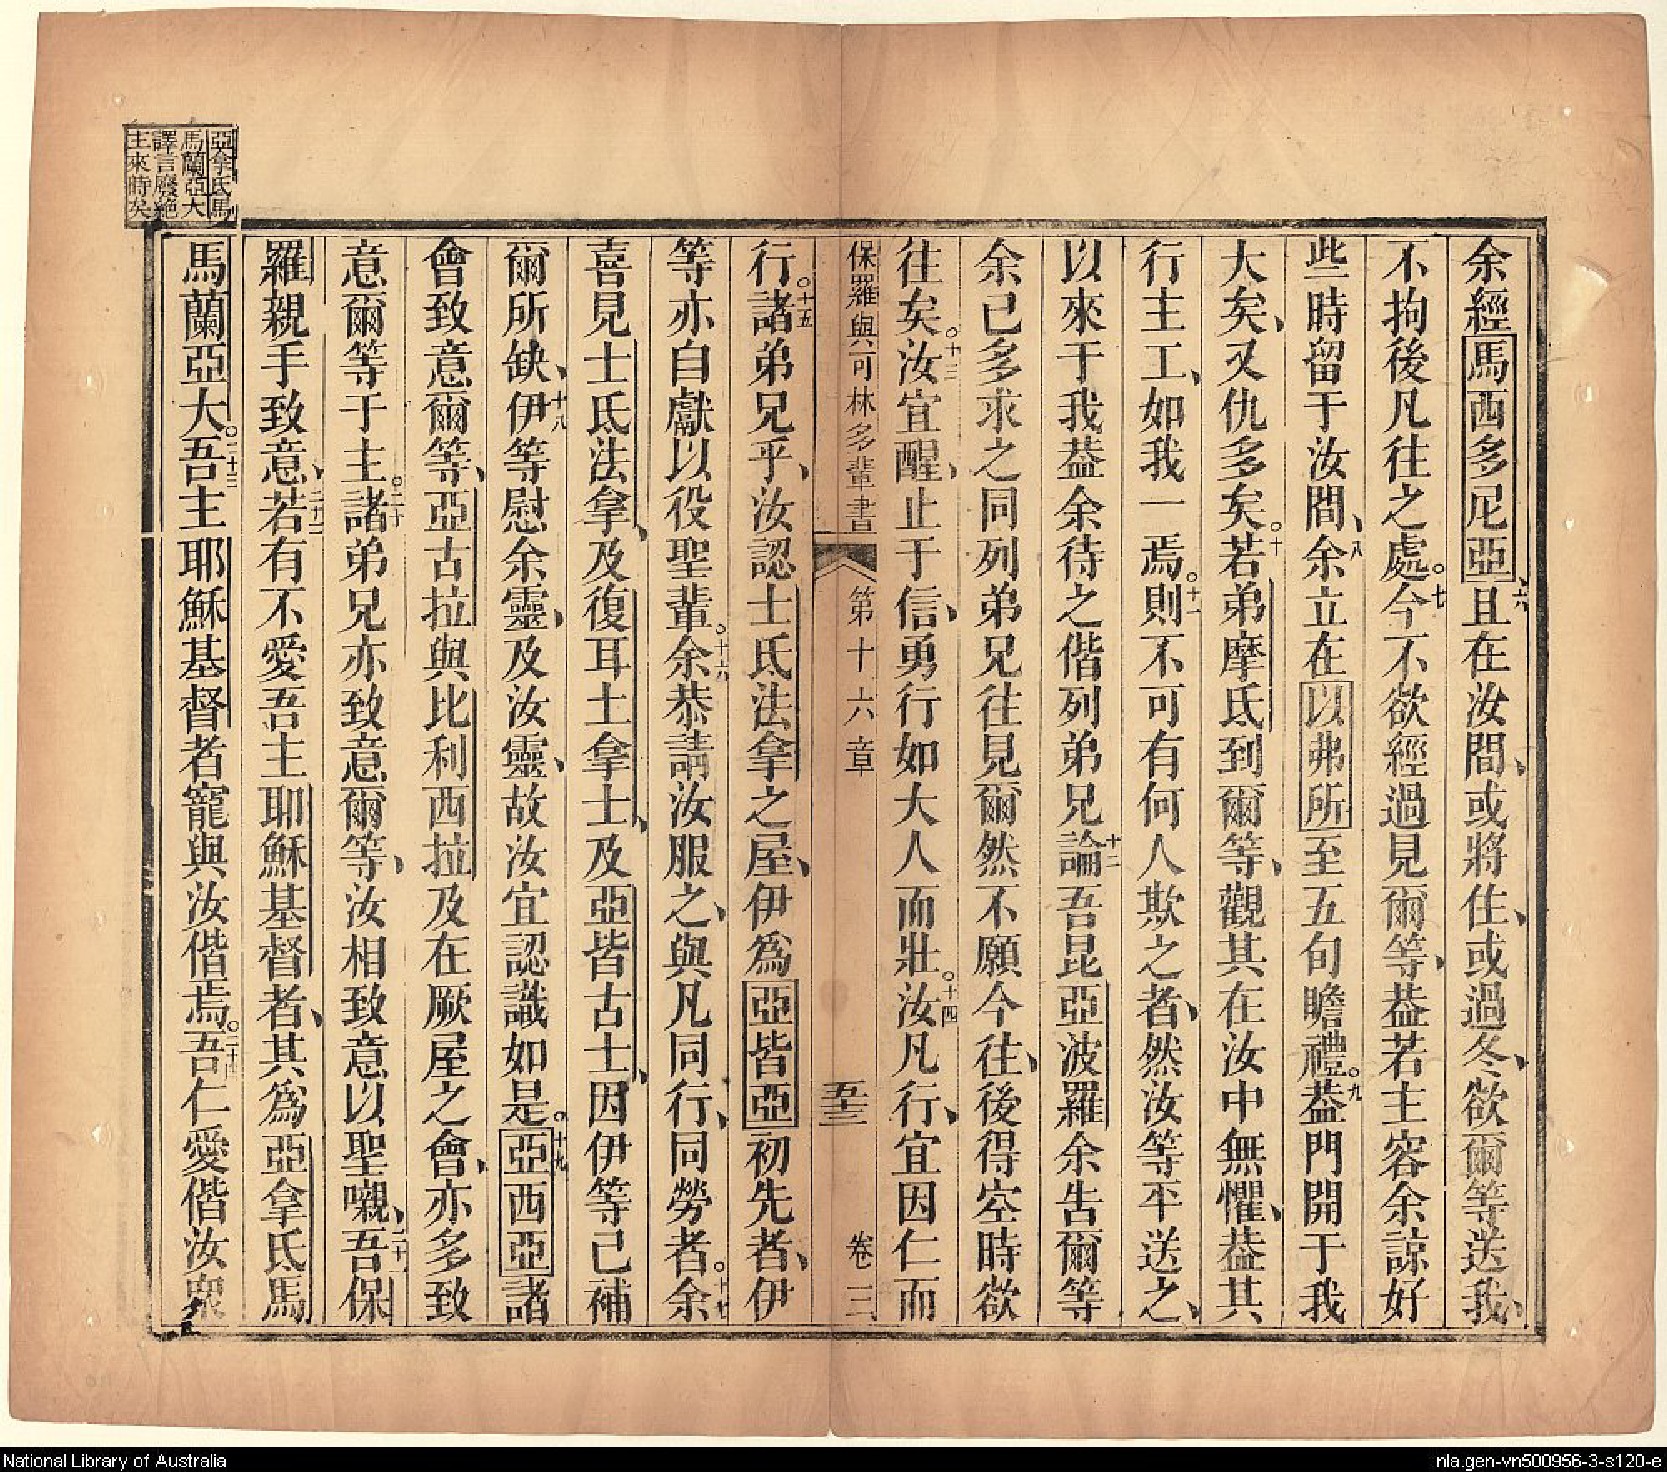 余經馬西多尼亞六且在汝間、或將住、或過冬、欲爾等送我、
不拘後凡往之處。七今不欲經過見爾等、葢若主容余諒好
些時留于汝間、八余立在以弗所至五旬瞻禮。九葢門開于我
大矣、又仇多矣。十若弟摩氐到爾等、觀其在汝中無懼、葢其
行主工、如我一焉。十一則不可有何人欺之者、然汝等平送之、
以來于我葢余待之偕列弟兄十二論吾昆亞波羅余吿爾等
余已多求之同列弟兄往見爾然不願今往、後得空時欲
往矣。十三汝宜醒、止于信、勇行如大人而壯。十四汝凡行、宜因仁而
保羅與可林多輩書 第十六章 五十三 卷三
行。十五諸弟兄乎、汝認士氐法拿之屋、伊爲亞皆亞初先者、伊
等亦自獻以役聖輩。十六余恭請汝服之、與凡同行、同勞者。十七余
喜見士氐法拿、及復耳土拿士、及亞皆古士、因伊等已補
爾所缺、十八伊等慰余靈、及汝靈、故汝宜認識如是。十九亞西亞諸
會致意爾等、亞古拉與比利西拉及在厥屋之會、亦多致
意爾等于主。二十諸弟兄亦致意爾等、汝相致意以聖嚫、二十一吾保
羅親手致意、二十二若有不愛吾主耶穌基督者、其爲亞拿氐馬
馬蘭亞大。二十三吾主耶穌基督者寵與汝偕焉。二十四吾仁愛偕汝衆
亞拿氐馬
馬蘭亞大
譯言廢絶
主來時矣
National Library of Australia
nla.gen-vn500956-3-s120-e